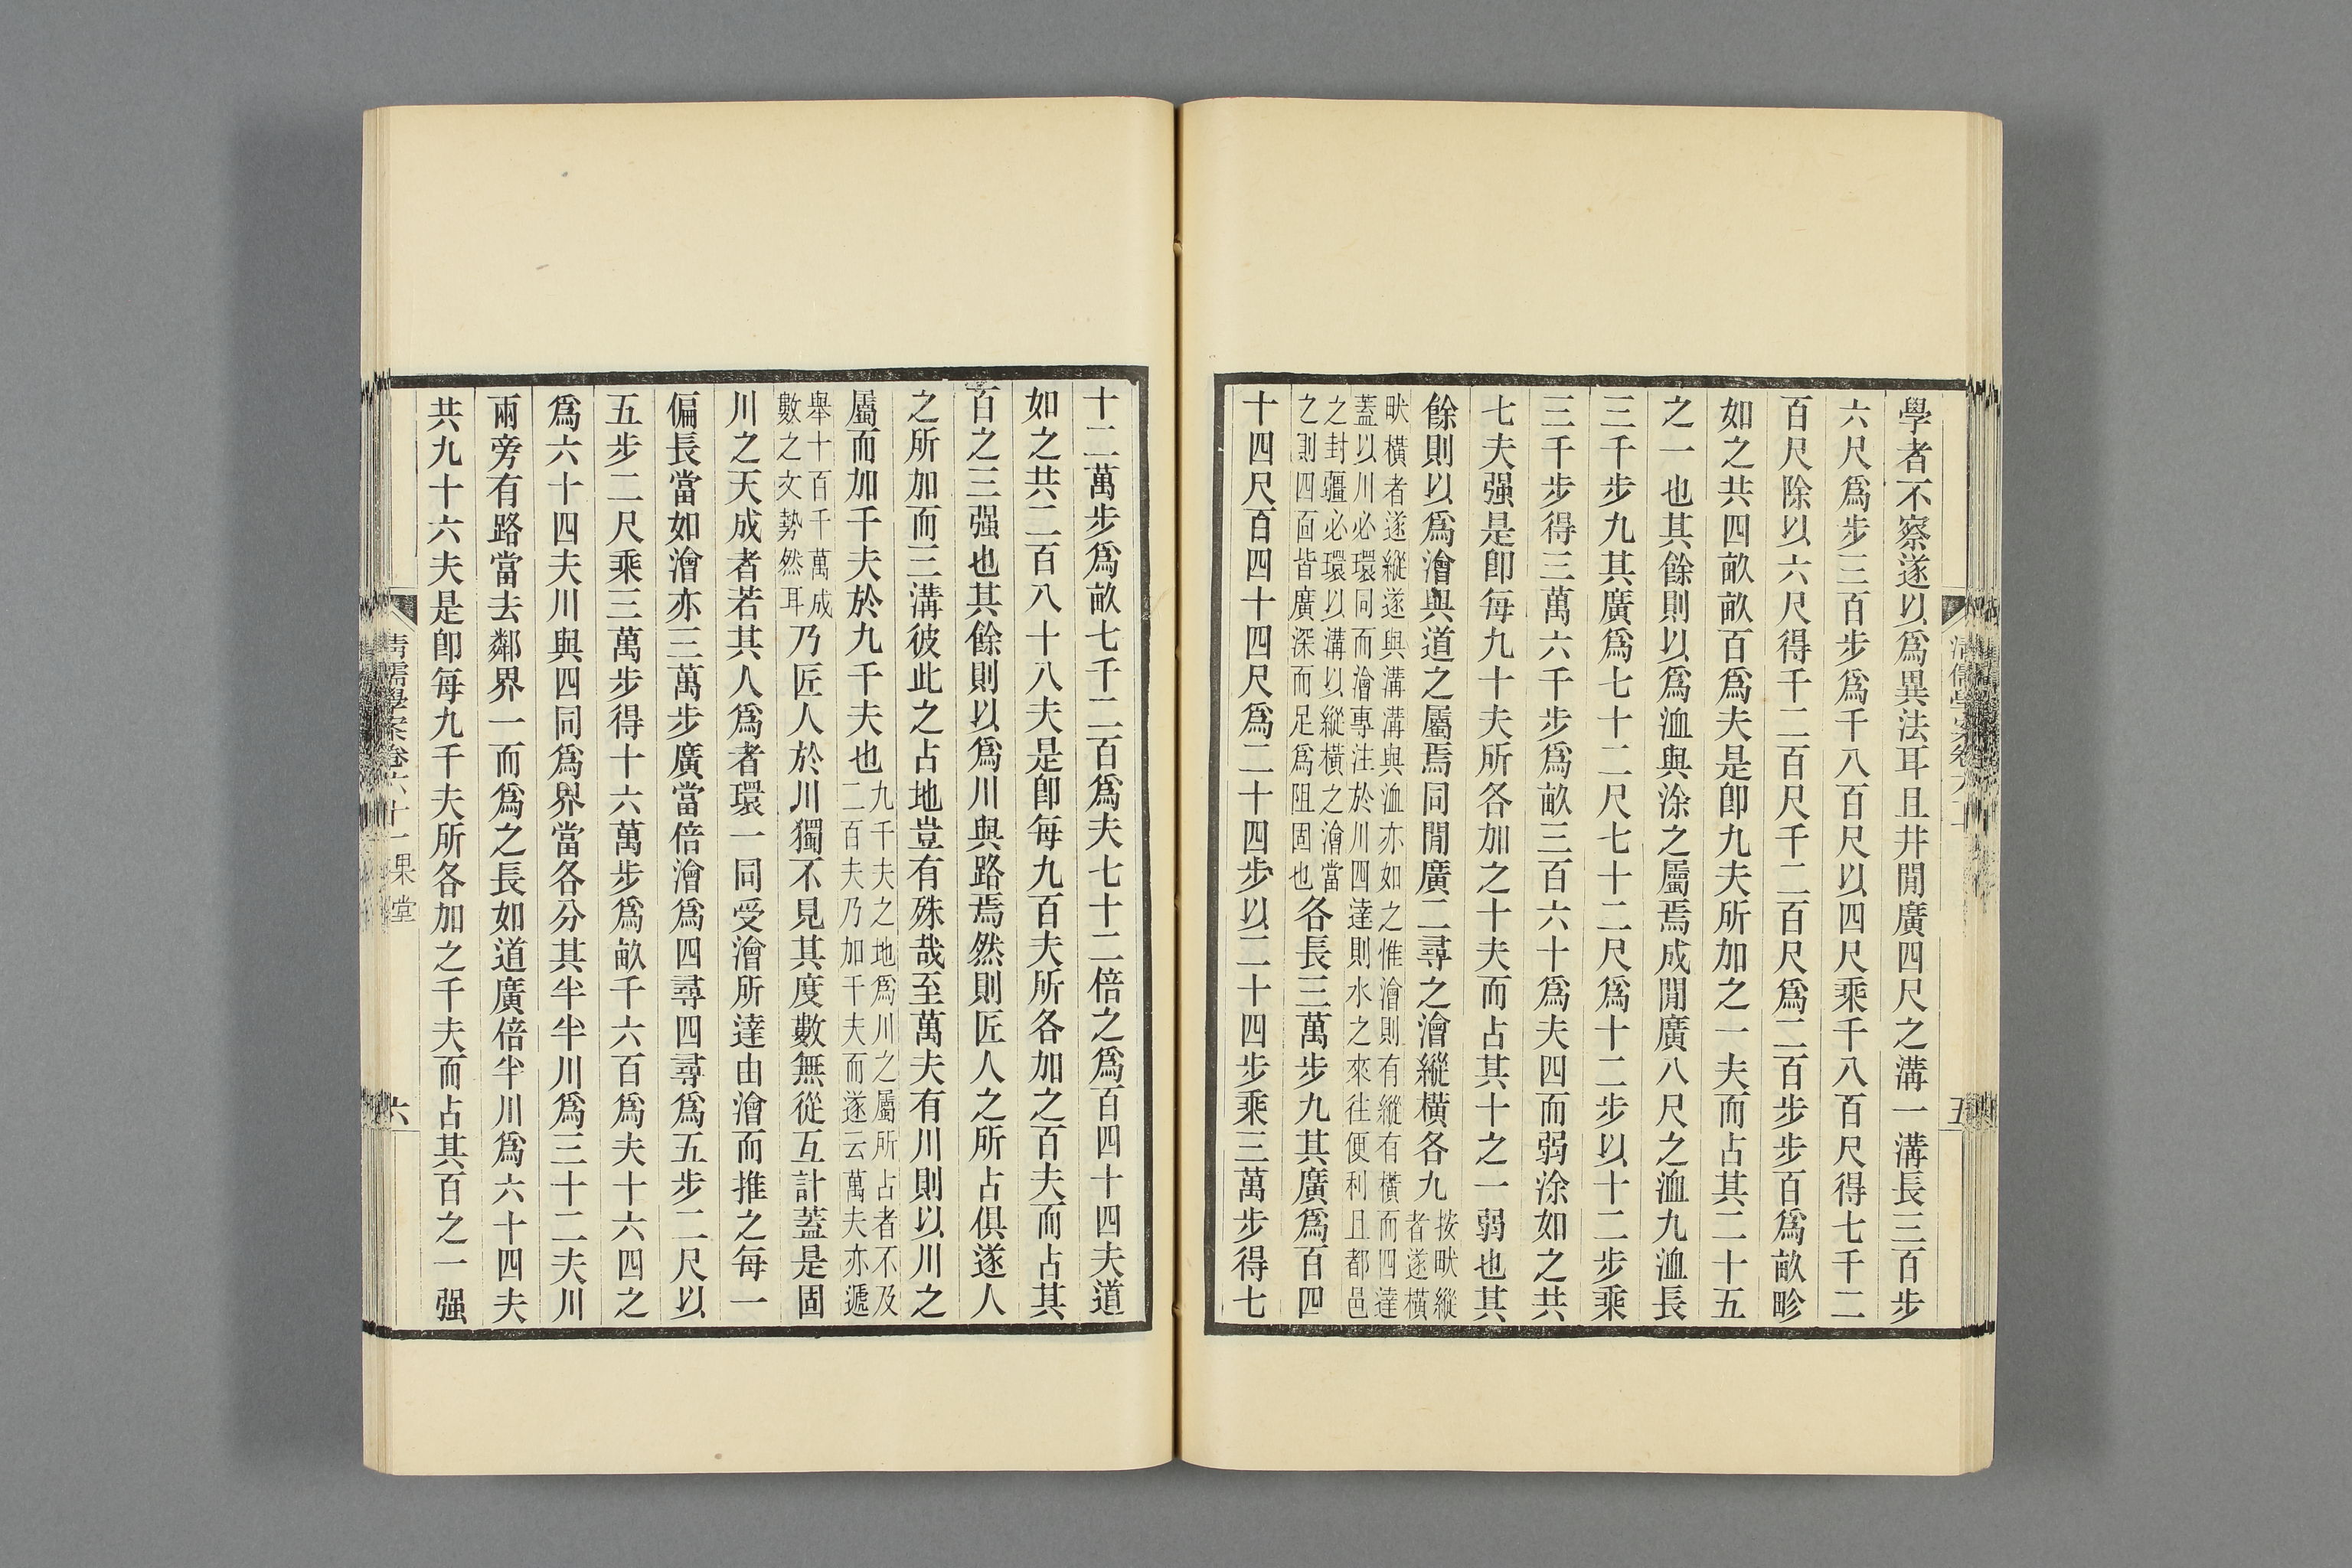 學者不察遂以爲異法耳且井閒廣四尺之溝一溝長三百步
六尺爲步三百步爲千八百尺以四尺乘千八百尺得七千二
百尺除以六尺得千二百尺千二百尺爲二百步步百爲畝畛
如之共四畝畝百爲夫是卽九夫所加之一夫而占其二十五
之一也其餘則以爲洫與涂之屬焉成閒廣八尺之洫九洫長
三千步九其廣爲七十二尺七十二尺爲十二步以十二步乘
三千步得三萬六千步爲畝三百六十爲夫四而弱涂如之共
七夫强是卽每九十夫所各加之十夫而占其十之一弱也其
餘則以爲澮與道之屬焉同閒廣二尋之澮縱橫各九
按畎縱
者遂橫
畎橫者遂縱遂與溝溝與洫亦如之惟澮則有縱有橫而四達
蓋以川必環同而澮專注於川四達則水之來往便利且都邑
之封疆必環以溝以縱橫之澮當
之則四面皆廣深而足爲阻固也
各長三萬步九其廣爲百四
十四尺百四十四尺爲二十四步以二十四步乘三萬步得七
五
十二萬步爲畝七千二百爲夫七十二倍之爲百四十四夫道
如之共二百八十八夫是卽每九百夫所各加之百夫而占其
百之三强也其餘則以爲川與路焉然則匠人之所占俱遂人
之所加而三溝彼此之占地豈有殊哉至萬夫有川則以川之
屬而加千夫於九千夫也
九千夫之地爲川之屬所占者不及
二百夫乃加千夫而遂云萬夫亦遞
舉十百千萬成
數之文勢然耳
乃匠人於川獨不見其度數無從互計蓋是固
川之天成者若其人爲者環一同受澮所達由澮而推之每一
偏長當如澮亦三萬步廣當倍澮爲四尋四尋爲五步二尺以
五步二尺乘三萬步得十六萬步爲畝千六百爲夫十六四之
爲六十四夫川與四同爲界當各分其半半川爲三十二夫川
兩旁有路當去鄰界一而爲之長如道廣倍半川爲六十四夫
共九十六夫是卽每九千夫所各加之千夫而占其百之一强
清儒學案卷六十一果堂
六